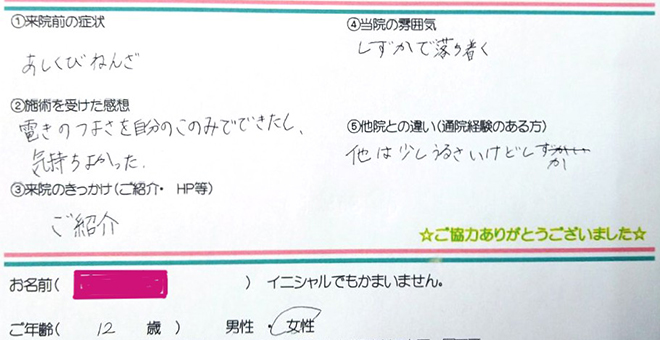 ①来院前の症状
あしくびねんざ
②施術を受けた感想
電きのつよさを自分のこのみでできたし、
気持ちよかった.
③来院のきっかけ(ご紹介・ HP等)
ご紹介
④当院の雰囲気
しずかで落ち着く
⑤他院との違い(通院経験のある方)
他は少しうるさいけどしずか
☆ご協力ありがとうございました☆
お名前( ) イニシャルでもかまいません。
ご年齢( 12 歳 ) 男性 ・ 女性